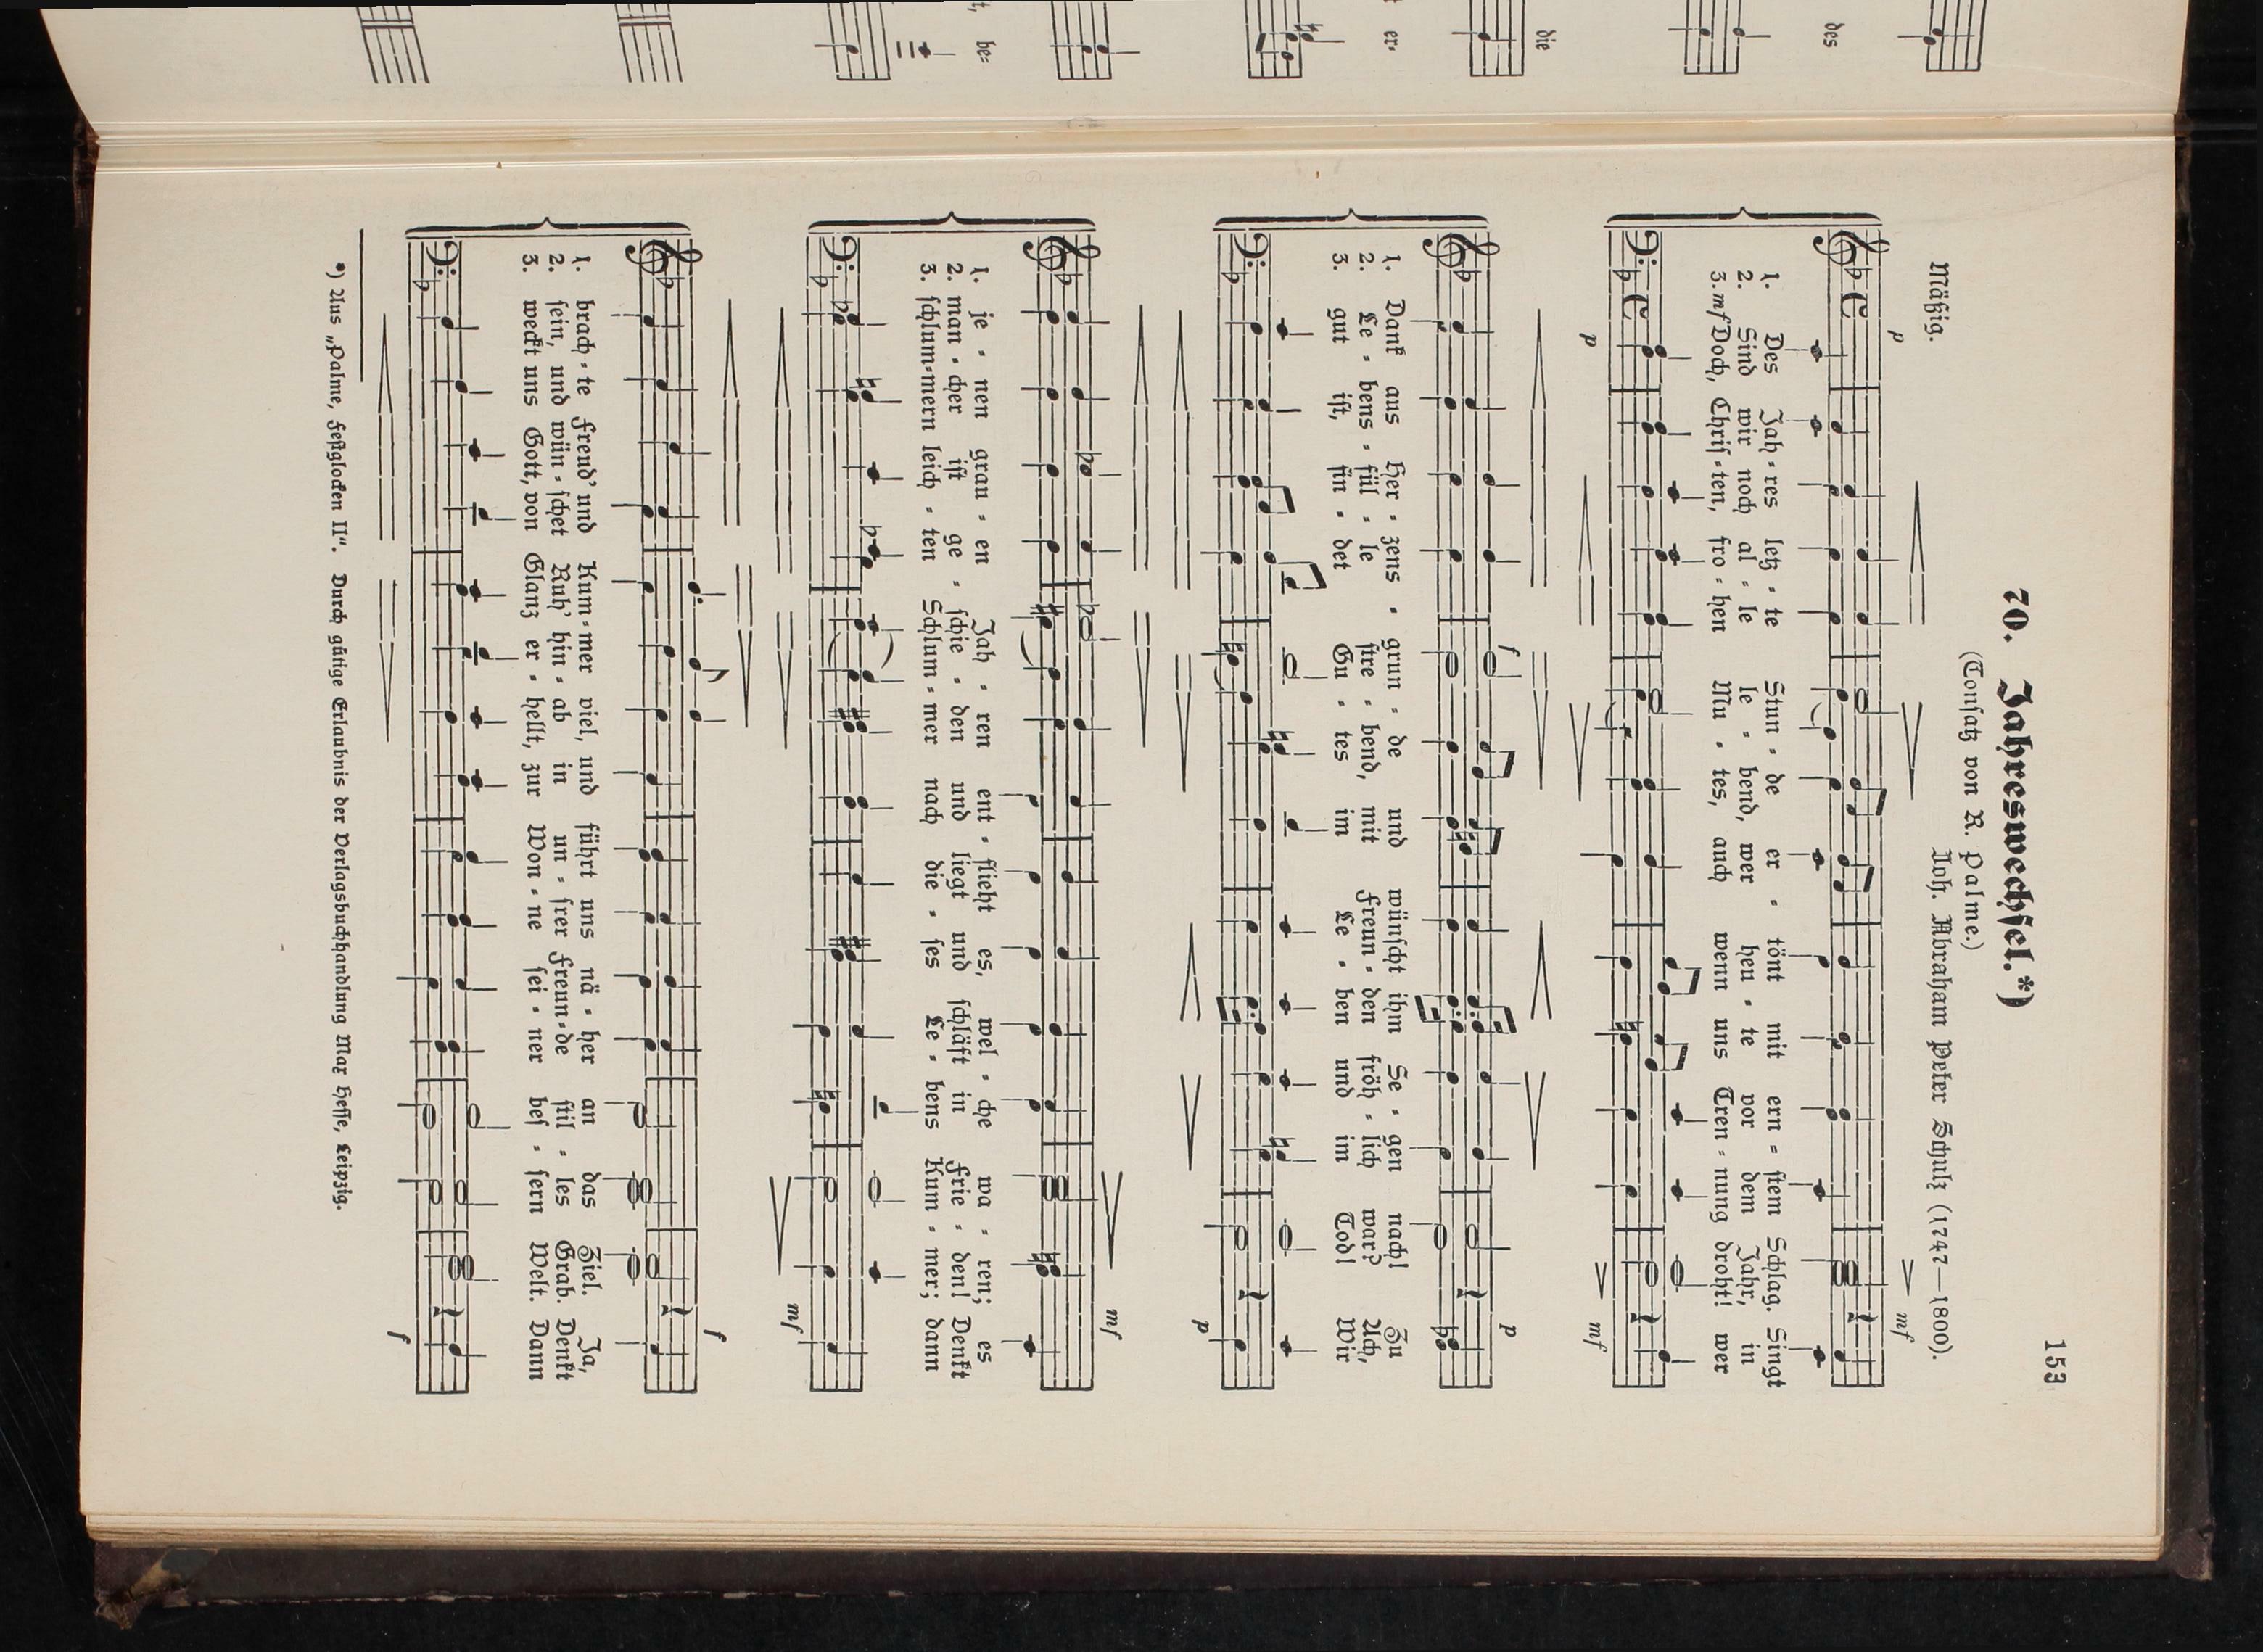 153
70. Jahreswechsel.*)
(Tonsatz von R. Palme.)
Mäßig.
Joh. Abraham Peter Schulz (1747—1800).
p mf
1. Des Jah-res letz-te Stun-de er-tönt mit ern-stem Schlag. Singt
2. Sind wir noch al-le le-bend, wer heu-te vor dem Jahr, in
3. mf Doch, Chris-ten, fro-hen Mu-tes, auch wenn uns Tren-nung droht! wer
p mf
f p
1. Dank aus Her-zens-grun-de und wünscht ihm Se-gen nach! Zu
2. Le-bens-fül-le stre-bend, mit Freun-den fröh-lich war? Ach,
3. gut ist, fin-det Gu-tes im Le-ben und im Tod! Wir
p
mf
1. je-nen grau-en Jah-ren ent-flieht es, wel-che wa-ren; es
2. man-cher ist ge-schie-den und liegt und schläft in Frie-den! Denkt
3. schlum-mern leich-ten Schlum-mer nach die-ses Le-bens Kum-mer; dann
mf
f
1. brach-te Freud' und Kum-mer viel, und führt uns nä-her an das Ziel. Ja,
2. sein, und wün-schet Ruh' hin-ab in un-srer Freun-de stil-les Grab. Denkt
3. weckt uns Gott, von Glanz er-hellt, zur Won-ne sei-ner bes-sern Welt. Dann
f
*) Aus „Palme, Festglocken II“. Durch gütige Erlaubnis der Verlagsbuchhandlung Max Hesse, Leipzig.
des
die
er-
be-